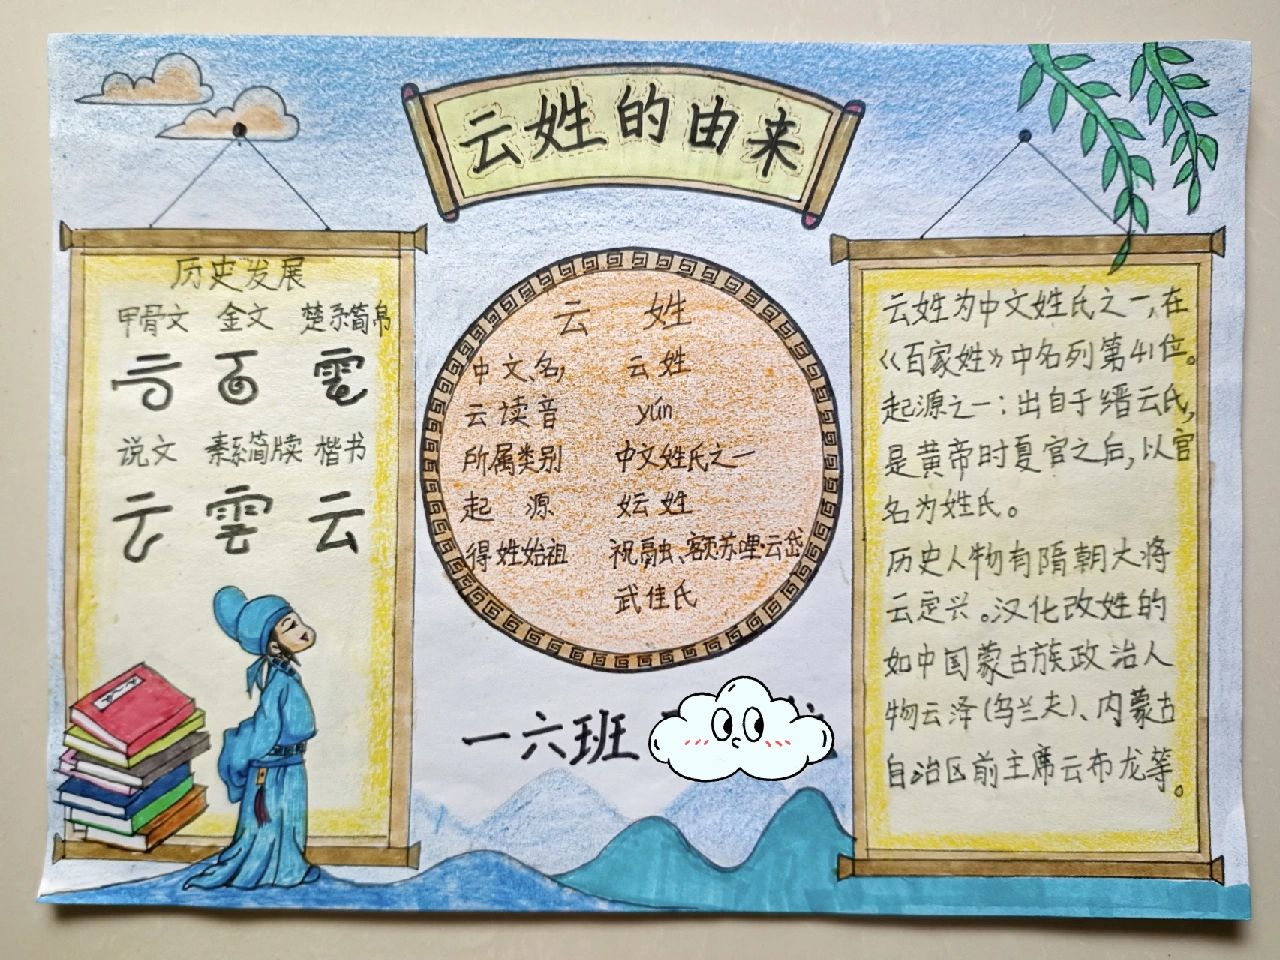 云姓的由来
历史发展
甲骨文 金文 楚系简帛
云 云 雲
说文 秦系简牍 楷书
云 雲 云
云 姓
中文名 云姓
云读音 yún
所属类别 中文姓氏之一
起源 妘姓
得姓始祖 祝融、额苏哩云岱
武佳氏
一六班
云姓为中文姓氏之一,在
《百家姓》中名列第41位。
起源之一:出自于缙云氏,
是黄帝时夏官之后,以官
名为姓氏。
历史人物有隋朝大将
云定兴。汉化改姓的
如中国蒙古族政治人
物云泽(乌兰夫)、内蒙古
自治区前主席云布龙等。